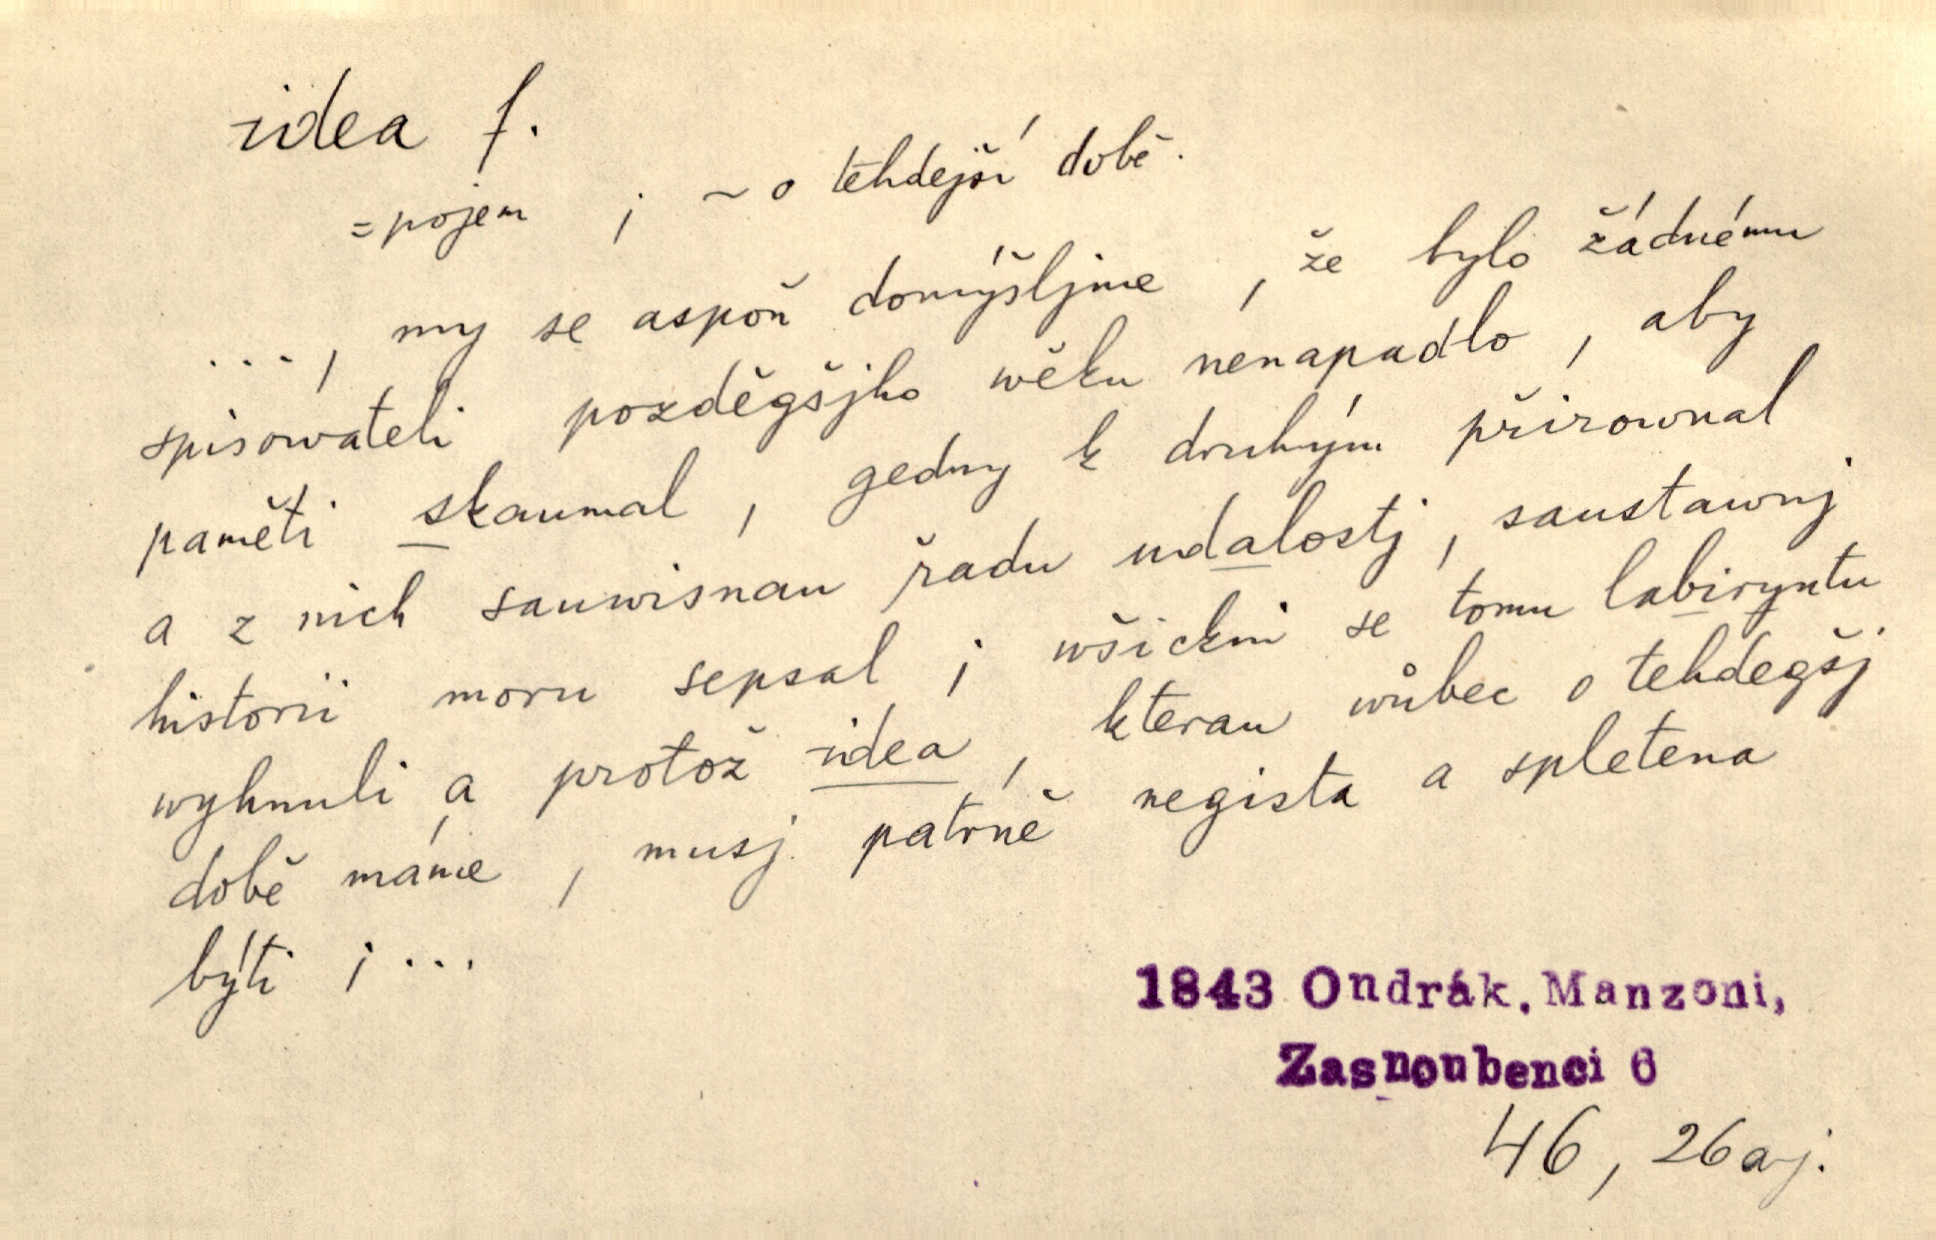 idea f.
= pojem ; ~ o tehdejší době.
..., my se aspoň domýšljme, že bylo žádnému
spisowateli pozděgšjho wěku nenapadlo, aby
paměti skaumal, gedny k druhým přirownal
a z nich sauwisnau řadu udalostj, saustawnj
historii moru sepsal; wšickni se tomu labiryntu
wyhnuli a protož idea, kterau wůbec o tehdegšj
době máme, musj patrně negista a spletena
býti; ...
1843 Ondrák, Manzoni,
Zasnoubenci 6
46, 26 aj.